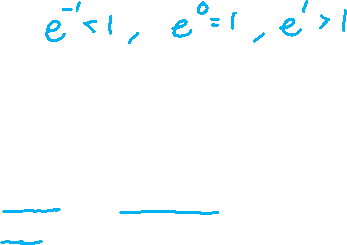 e⁻¹ < 1 , e⁰ = 1 , e¹ > 1